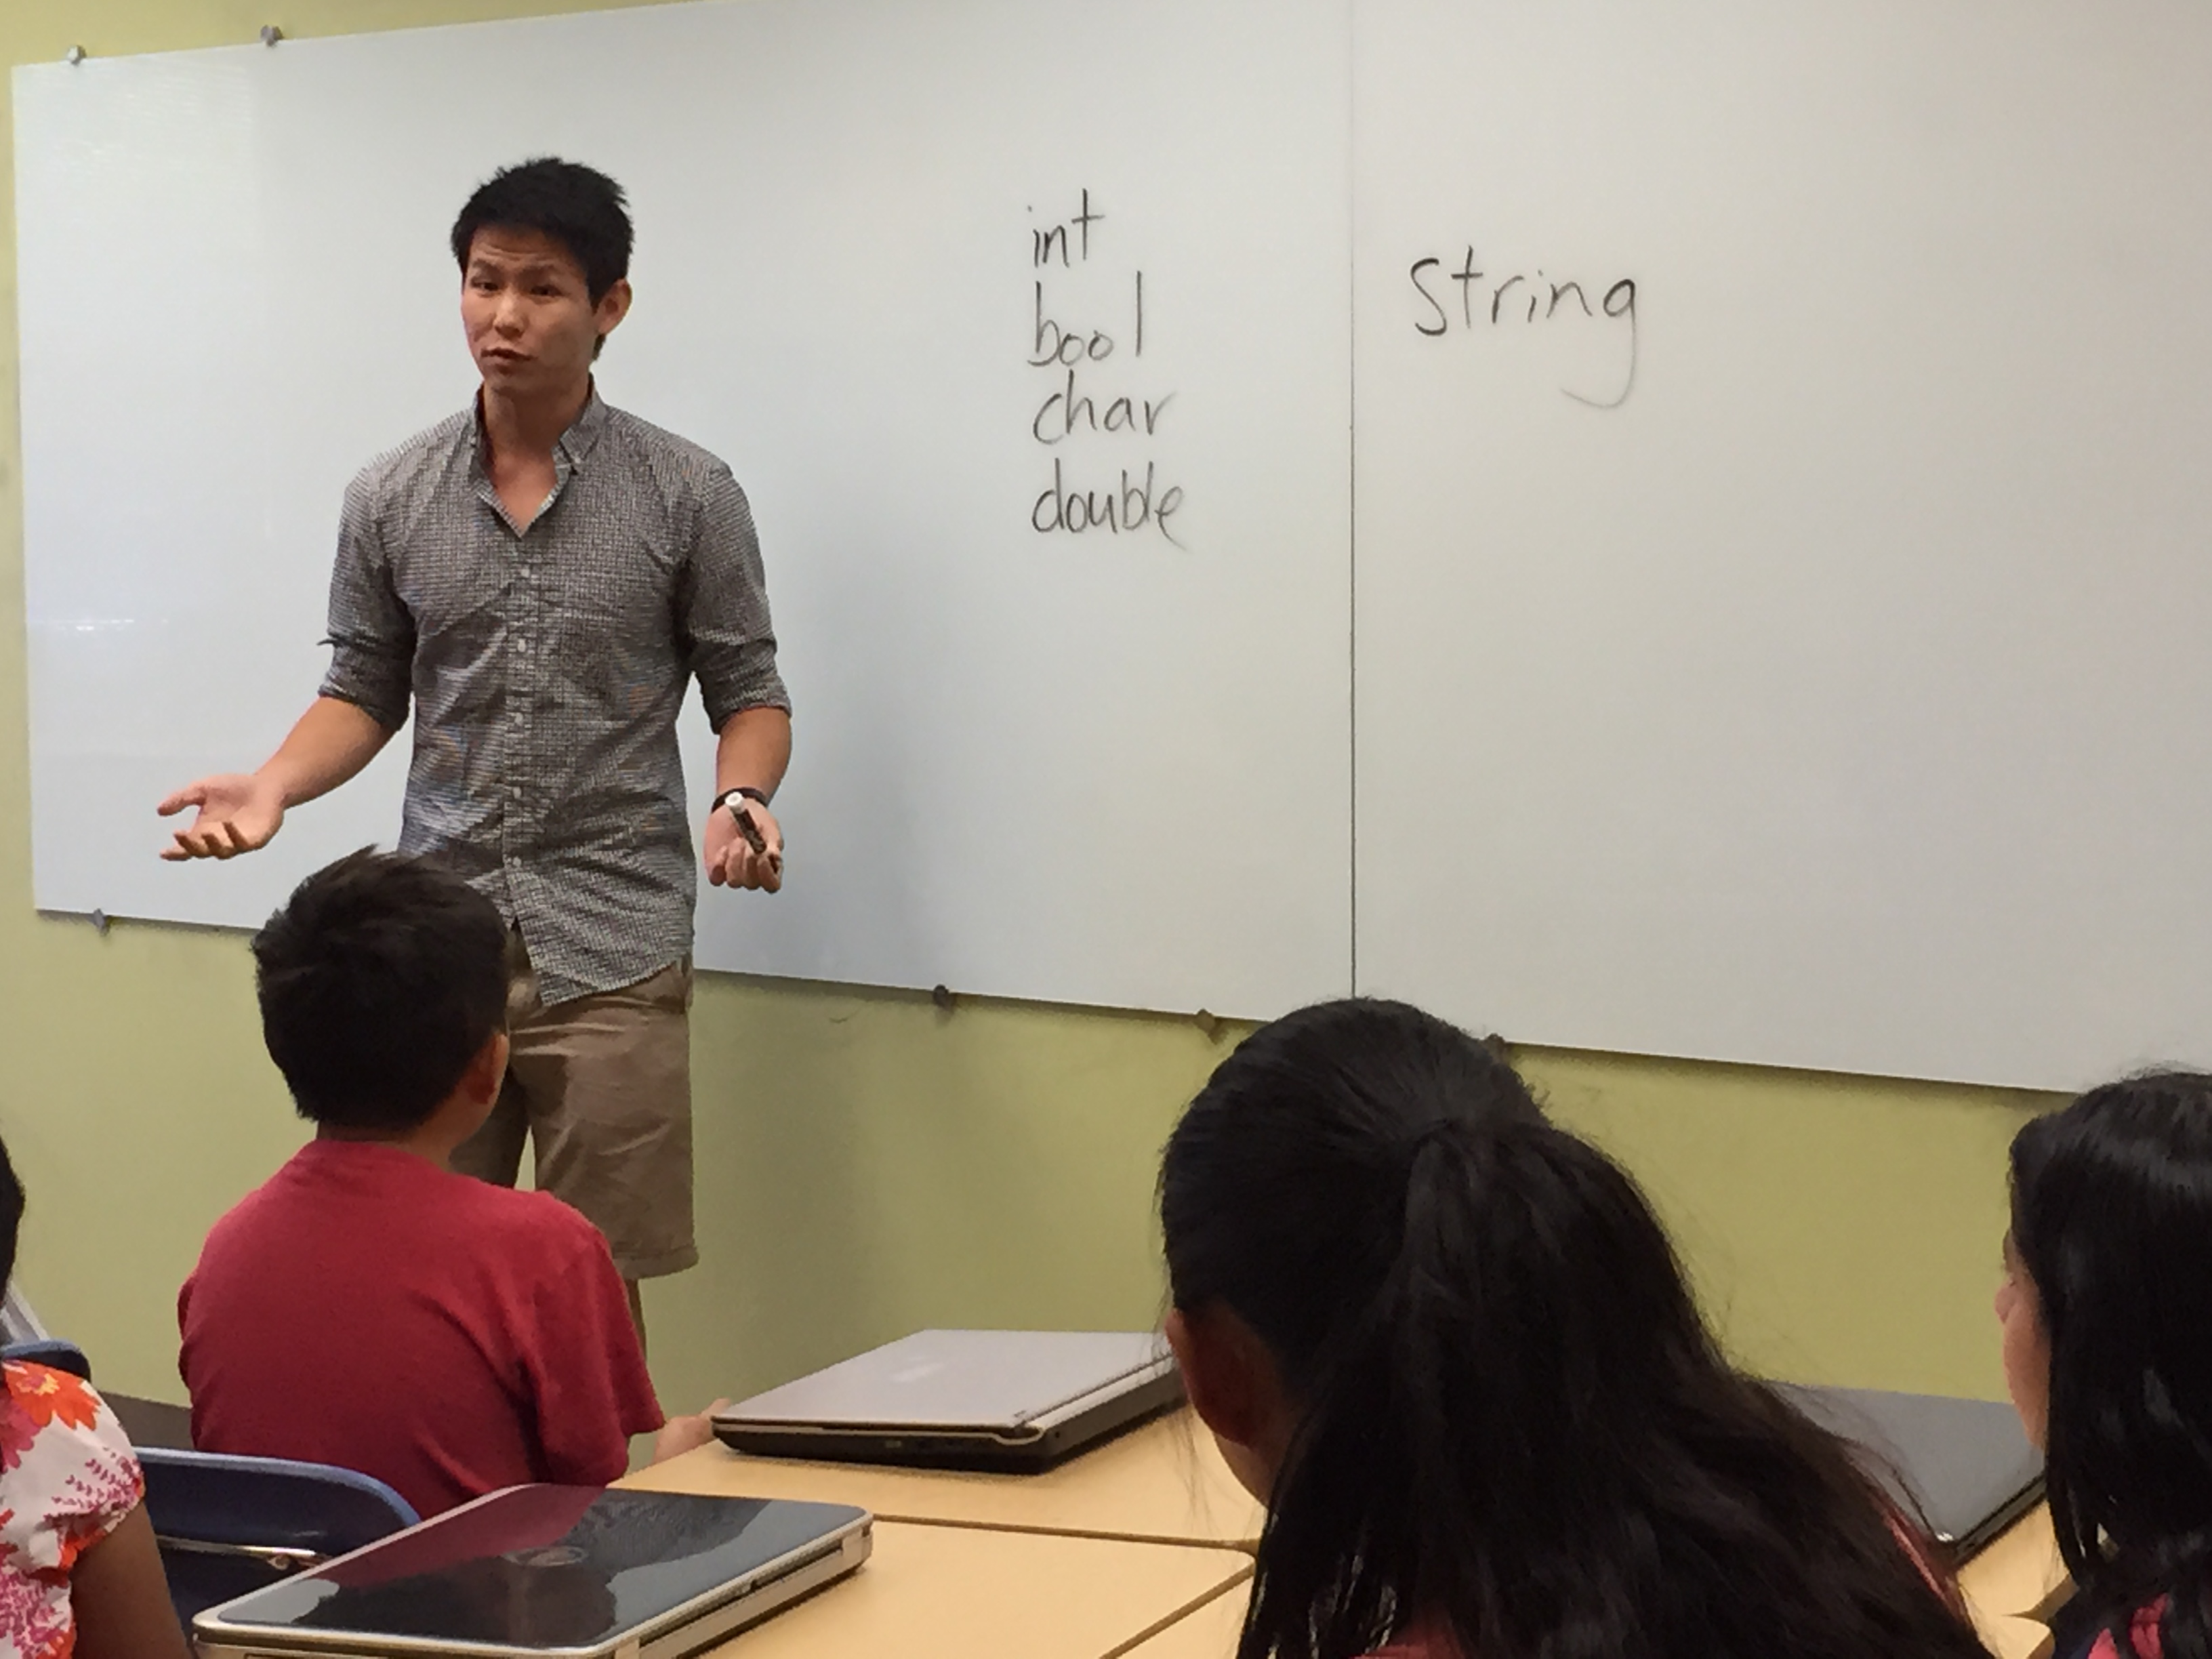 int
bool
char
double
String